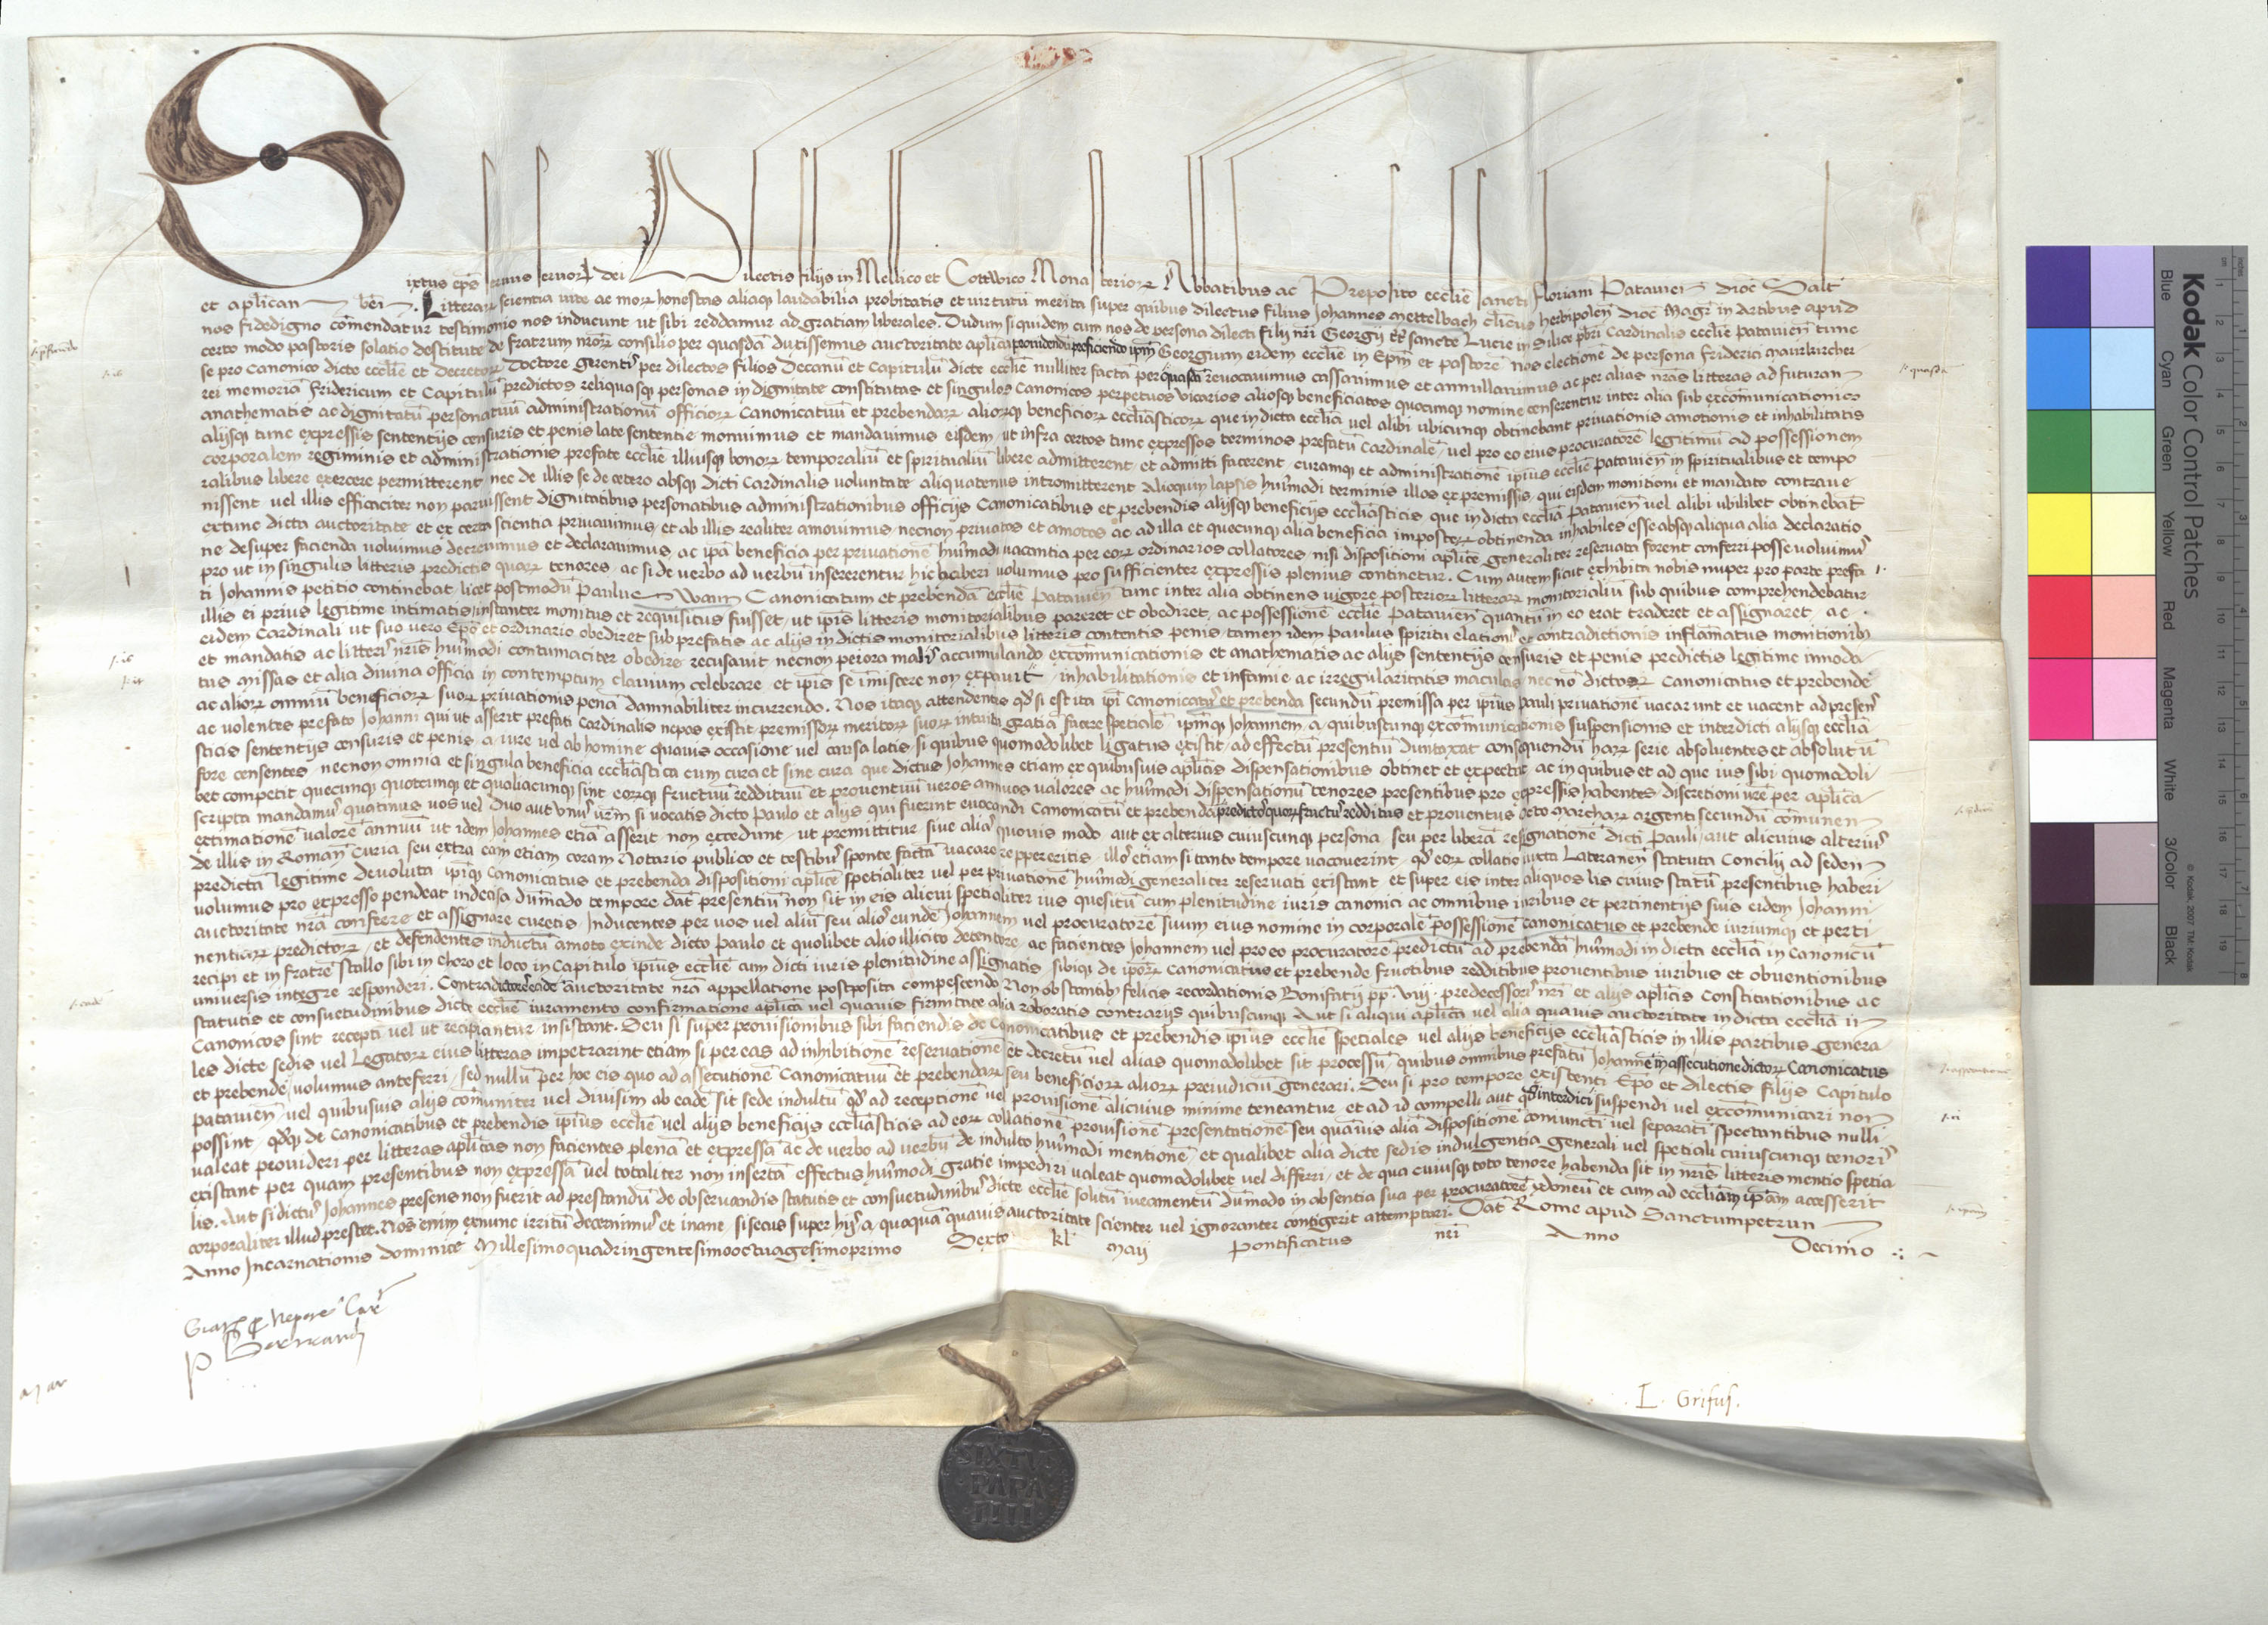 Sixtus ep̄s servus servoꝝ dei Dilectis filijs in Mellico et Cottwico Monasterioꝝ Abbatibus ac Preposito ecclie sancti Floriani Patavien dioc̄ Salt̄
et aplican̄ ben̄. Litteraꝝ scientia vite ac moꝝ honestas aliaqꝫ laudabilia probitatis et virtutū merita super quibus dilectus filius Johannes Mettelbach clicus herbipolen̄ dioc̄ Magr̄ in Artibus apud
nos fidedigno cōmendatur testimonio nos inducunt ut sibi reddamur ad gratiam liberales. Dudum siquidem cum nos de persona dilecti filij nr̄i Georgij tt̄ sancte Lucie in Silice pb̄ri Cardinalis ecclie patavien̄ tunc
certo modo pastoris solatio destitute de fratrum nr̄oꝝ consilio per quasdā duxissemus auctoritate aplica providendū preficiendo ip̄m Georgium eidem ecclie in Ep̄m et pastorē nos electionē de persona Friderici Maurkircher
se pro Canonico dicte ecclie et decretoꝝ Doctore gerenti per dilectos filios Decanū et Capitulū dicte ecclie nulliter factā per quasdā revocavimus cassavimus et annullavimus ac per alias nr̄as litteras ad futuram
rei memoriā Fridericum et Capitulū predictos reliquasqꝫ personas in dignitate constitutas et singulos Canonicos perpetuos vicarios aliosqꝫ beneficiatos quocunqꝫ nomine censerentur inter alia sub excōmunicationis
anathematis ac dignitatū personatuū administrationū officioꝝ Canonicatuū et prebendaꝝ aliorqꝫ beneficioꝝ eccliasticoꝝ que in dicta ecclia vel alibi ubicunqꝫ obtinebant privationis amotionis et inhabilitatis
alijsqꝫ tunc expressis sententijs censuris et penis late sententie monuimus et mandavimus eisdem ut infra certos tunc expressos terminos prefatū Cardinalē vel pro eo eius procuratorē legitimū ad possessionem
corporalem regiminis et administrationis prefate ecclie illiusqꝫ bonoꝝ temporaliū et spiritualiū libere admitterent et admitti facerent curamqꝫ et administrationē ipius ecclie patavien̄ in spiritualibus et tempo
ralibus libere exercere permitterent nec de illis se de cetero absqꝫ dicti Cardinalis voluntate aliquatenus intromitterent Alioquin lapsis huiꝰmodi terminis illos ex premissis qui eisdem monitioni et mandato contrave
nissent vel illis efficaciter non paruissent dignitatibus personatibus administrationibus officijs Canonicatibus et prebendis alijsqꝫ beneficijs eccliasticis que in dicta ecclia patavien̄ vel alibi ubilibet obtinebāt
extunc dicta auctoritate et ex certa scientia privavimus et ab illis realiter amovimus necnon privatos et amotos ac ad illa et quecunqꝫ alia beneficia imposteꝝ obtinenda inhabiles esse absqꝫ aliqua alia declaratio
ne desuper facienda voluimus decrevimus et declaravimus ac ip̄a beneficia per privationē huiꝰmodi vacantia per eoꝝ ordinarios collatores nisi dispositioni aplice generaliter reservata forent conferri posse voluimꝰ
pro ut in singulis litteris predictis quaꝝ tenores ac si de verbo ad verbū insererentur hic haberi volumus pro sufficienter expressis plenius continetur. Cum autem sicut exhibita nobis nuper pro parte prefa
ti Johannis petitio continebat licet postmodū Paulus Wann Canonicatum et prebendā ecclie Patavien̄ tunc inter alia obtinens vigore posterioꝝ litteraꝝ monitorialiū sub quibus comprehendebatur
illis ei prius legitime intimatis instanter monitus et requisitus fuisset ut ip̄is litteris monitorialibus pareret et obediret ac possessionē ecclie Patavien̄ quantū in eo erat traderet et assignaret ac
eidem Cardinali ut suo vero Ep̄o et ordinario obediret sub prefatis ac alijs in dictis monitorialibus litteris contentis penis tamen idem Paulus spiritu elationis et contradictionis inflāmatus monitionibꝫ
et mandatis ac litteris nr̄is huiꝰmodi contumaciter obedire recusavit necnon peiora malis accumulando excōmunicationis et anathematis ac alijs sententijs censuris et penis predictis legitime innoda
tus missas et alia divina officia in contemptum clavium celebrare et ip̄is se imiscere non expavit inhabilitationis et infamie ac irregularitatis maculas necnō dictoꝝ Canonicatus et prebende
ac alioꝝ omniū beneficioꝝ suoꝝ privationis penā damnabiliter incurrendo. Nos itaqꝫ attendentes qd si est ita ip̄i Canonicatus et prebenda secundū premissa per ipius Pauli privationē vacarunt et vacent ad presens
ac volentes prefato Johanni qui ut asserit prefati Cardinalis nepos existit premissoꝝ meritoꝝ suoꝝ intuitu gratiā facere specialē ip̄mqꝫ Johannem a quibuscunqꝫ excōmunicationis suspensionis et interdicti alijsqꝫ ecclia
sticis sententijs censuris et penis a iure vel ab homine quavis occasione vel causa latis si quibus quomodolibet ligatus existit ad effectū presentiū duntaxat consequendū haꝝ serie absolventes et absolutū
fore censentes necnon omnia et singula beneficia eccliastica cum cura et sine cura que dictus Johannes etiam ex quibusvis aplicis dispensationibus obtinet et expectat ac in quibus et ad que ius sibi quomodoli
bet competit quecunqꝫ quotcunqꝫ et qualiacunqꝫ sint eorqꝫ fructuū reddituū et proventuū veros annuos valores ac huiꝰmodi dispensationū tenores presentibus pro expressis habentes discretioni vr̄e per aplica
scripta mandamꝰ quatinus vos vel duo aut unꝰ vr̄m si vocatis dicto Paulo et alijs qui fuerint evocandi Canonicatū et prebendā predictos quoꝝ fructꝰ redditus et proventus octo Marchaꝝ argenti secundū cōmunem
extimationē valorē annuū ut idem Johannes etiā asserit non excedunt ut premittitur sive alias quovis modo aut ex alterius cuiuscunqꝫ persona seu per liberā resignationē dicti Pauli aut alicuius alteriꝰ
de illis in Roman̄ Curia seu extra eam etiam coram Notario publico et testibꝰ sponte factā vacare reppereritis illos etiam si tanto tempore vacaverint qd eoꝝ collatio iuxta Lateranen̄ statuta Concilij ad sedem
predictā legitime devoluta ip̄iqꝫ Canonicatus et prebenda dispositioni aplice specialiter vel per privationē huiꝰmodi generaliter reservati existant et super eis inter aliquos lis cuius statū presentibus haberi
volumus pro expresso pendeat indecisa dūmodo tempore dat̄ presentiū non sit in eis alicui specialiter ius quesitū cum plenitudine iuris canonici ac omnibus iuribus et pertinentijs suis eidem Johanni
auctoritate nr̄a conferre et assignare curetis Inducentes per vos vel aliū seu alios eundē Johannem vel procuratorē suum eius nomine in corporalē possessionē canonicatus et prebende iuriumqꝫ et perti
nentiaꝝ predictoꝝ et defendentes inductū amoto exinde dicto Paulo et quolibet alio illicito detentore ac facientes Johannem vel pro eo procuratorē predictū ad prebendā huiꝰmodi in dicta ecclia in Canonicū
recipi et in fratrē stallo sibi in choro et loco in Capitulo ipius ecclie cum dicti iuris plenitudine assignatis sibiqꝫ de ip̄oꝝ Canonicatus et prebende fructibus redditibus proventibus iuribus et obventionibus
universis integre responderi. Contradictores eadē auctoritate nr̄a appellatione postposita compescendo Non obstantibꝫ felicis recordationis Bonifatij pp̄ viij predecessoris nr̄i et alijs aplicis Constitutionibus ac
statutis et consuetudinibus dicte ecclie iuramento confirmatione aplica vel quavis firmitate alia roboratis contrarijs quibuscunqꝫ Aut si aliqui aplica vel alia quavis auctoritate in dicta ecclia in
Canonicos sint recepti vel ut recipiantur insistant. Seu si super provisionibus sibi faciendis de Canonicatibus et prebendis ipius ecclie speciales vel alijs beneficijs eccliasticis in illis partibus genera
les dicte sedis vel Legatoꝝ eius litteras impetrarint etiam si per eas ad inhibitionē reservationē et decretū vel alias quomodolibet sit processū quibus omnibus prefatū Johannē in assecutione dictoꝝ Canonicatus
et prebende volumus anteferri sed nullū per hoc eis quo ad assecutionē Canonicatuū et prebendaꝝ seu beneficioꝝ alioꝝ preiudiciū generari. Seu si pro tempore existenti Ep̄o et dilectis filijs Capitulo
patavien̄ vel quibusvis alijs cōmuniter vel divisim ab eadē sit sede indultū qd ad receptionē vel provisionē alicuius minime teneantur et ad id compelli aut qd interdici suspendi vel excōmunicari non
possint qdqꝫ de Canonicatibus et prebendis ipius ecclie vel alijs beneficijs eccliasticis ad eoꝝ collationē provisionē presentationē seu quāvis aliā dispositionē coniunctī vel separatī spectantibus nulli
valeat provideri per litteras aplicas non facientes plenā et expressā ac de verbo ad verbū de indulto huiꝰmodi mentionē et qualibet alia dicte sedis indulgentia generali vel speciali cuiuscunqꝫ tenoris
existant per quam presentibus non expressā vel totaliter non insertā effectus huiꝰmodi gratie impediri valeat quomodolibet vel differri et de qua cuiusqꝫ toto tenore habenda sit in nr̄is litteris mentio specia
lis. Aut si dictꝰ Johannes presens non fuerit ad prestandū de observandis statutis et consuetudinibꝰ dicte ecclie solitū iuramentū dūmodo in absentia sua per procuratorē ydoneū et cum ad eccliam ip̄am accesserit
corporaliter illud prestet. Nos enim exnunc irritū decernimꝰ et inane si secus super hijs a quoquā quavis auctoritate scienter vel ignoranter contigerit attemptari. Dat̄ Rome apud Sanctumpetrum
Anno Incarnationis dominice Millesimoquadringentesimooctuagesimoprimo Sexto kl̄ Maij Pontificatus nr̄i Anno Decimo
L. Grifus.
SIXTUS
PAPA
IIII
Kodak Color Control Patches
© Kodak, 2007 TM: Kodak
Blue Cyan Green Yellow Red Magenta White 3/Color Black